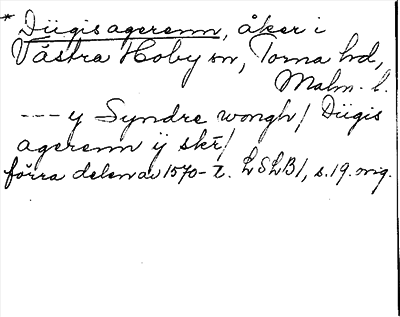 * Düigis agerenn, åker i
Västra Hoby sn, Torna hd,
Malm. l.
--- y Syndre wongh/ Düigis
agerenn ÿ skr/
förra delen av 1570-t. LSLB1, s. 19. mg.